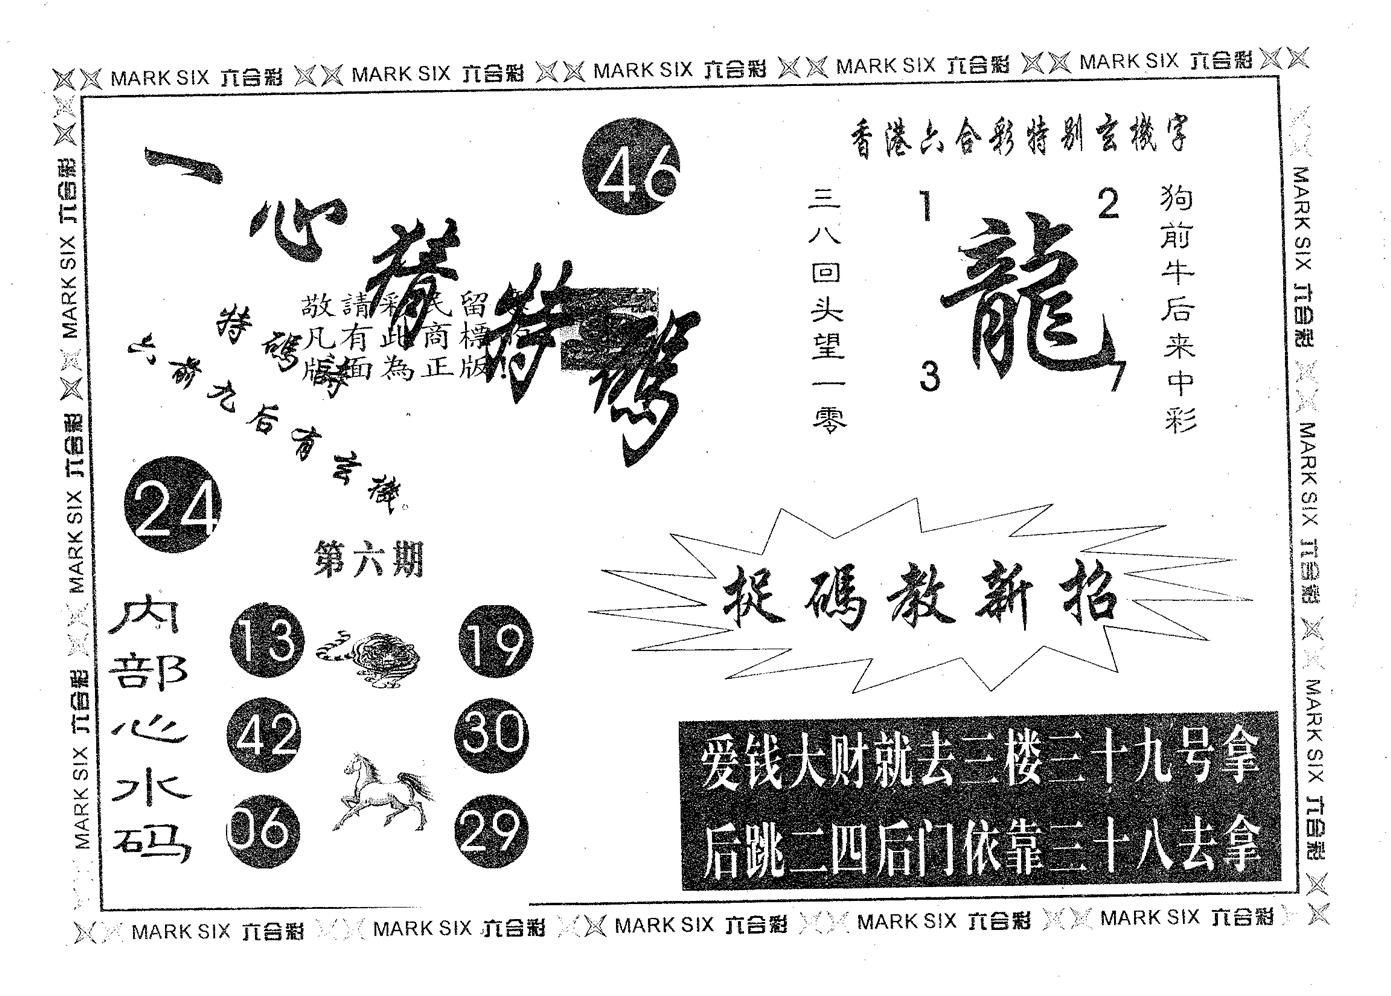 MARK SIX 六合彩 MARK SIX 六合彩 MARK SIX 六合彩 MARK SIX 六合彩 MARK SIX 六合彩
MARK SIX 六合彩 MARK SIX 六合彩 MARK SIX 六合彩
一心猜特碼
46
敬請彩民留
凡有此商標
版面為正版!
特碼詩
六前九后有玄機。
24
第六期
内部心水码
13 19
42 30
06 29
香港六合彩特别玄機字
三八回头望一零
1 2
龍
3 7
狗前牛后来中彩
捉碼教新招
爱钱大财就去三楼三十九号拿
后跳二四后门依靠三十八去拿
MARK SIX 六合彩 MARK SIX 六合彩 MARK SIX 六合彩
MARK SIX 六合彩 MARK SIX 六合彩 MARK SIX 六合彩 MARK SIX 六合彩 MARK SIX 六合彩